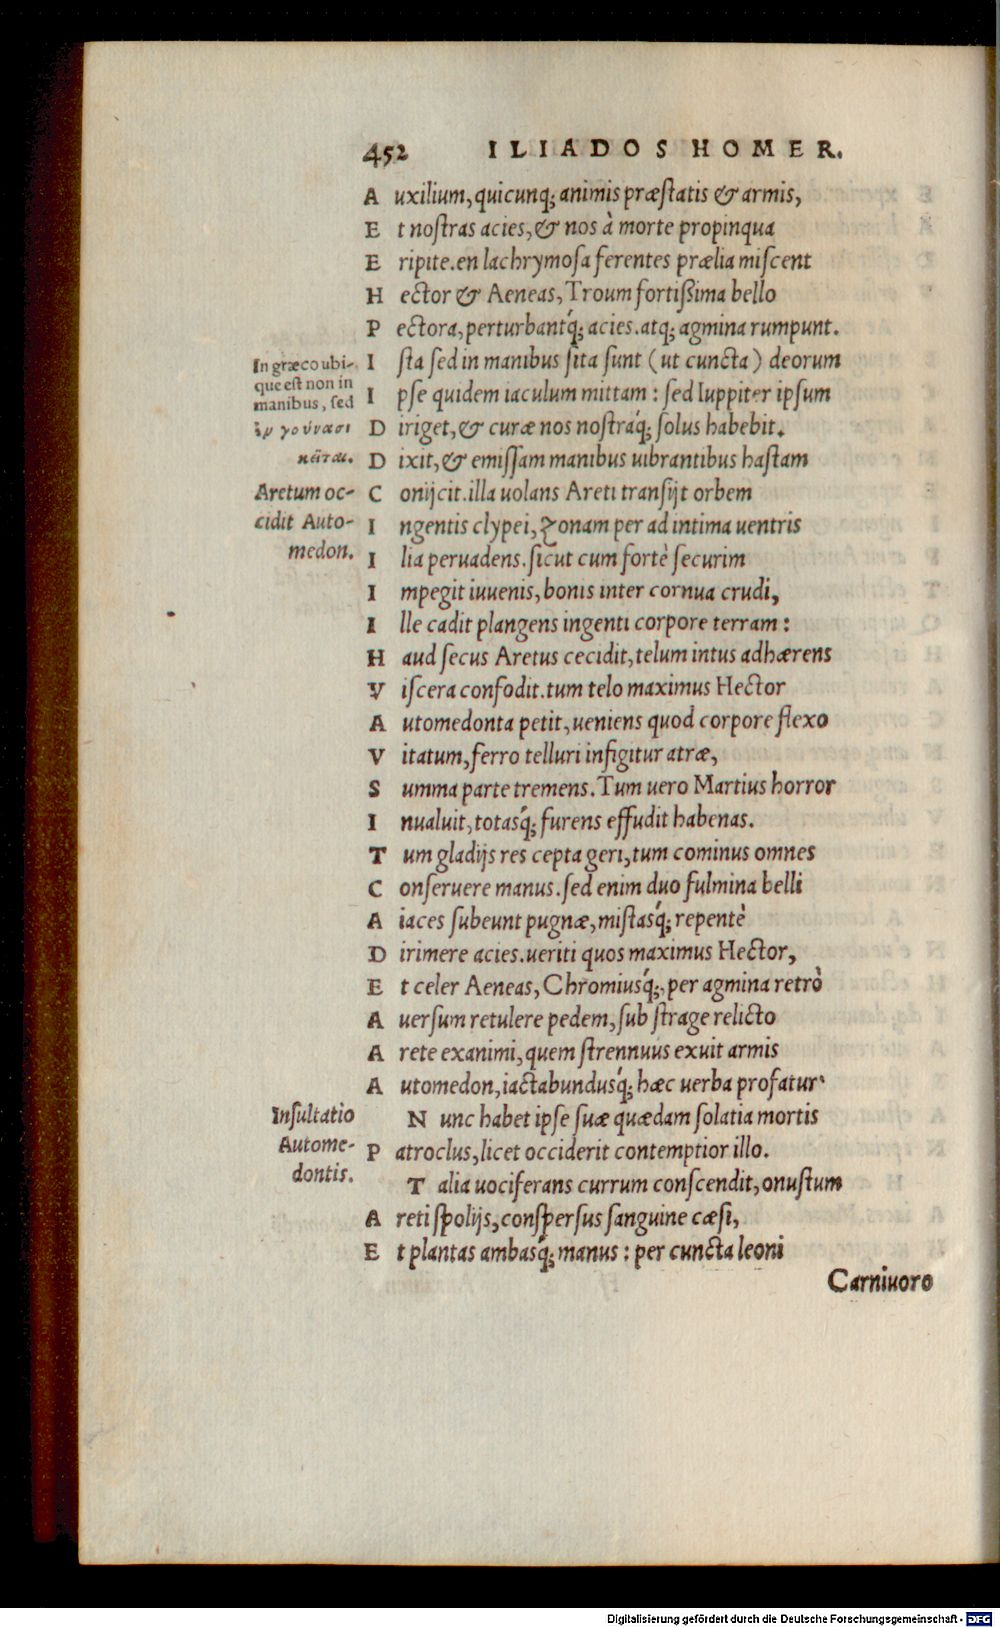 452 ILIADOS HOMER.
Auxilium, quicunq; animis præstatis & armis,
Et nostras acies, & nos à morte propinqua
Eripite. en lachrymosa ferentes prælia miscent
Hector & Aeneas, Troum fortißima bello
Pectora, perturbantq́; acies. atq; agmina rumpunt.
Ista sed in manibus sita sunt (ut cuncta) deorum
Ipse quidem iaculum mittam: sed Iuppiter ipsum
Diriget, & curæ nos nostraq́; solus habebit.
Dixit, & emissam manibus uibrantibus hastam
Conijcit. illa uolans Areti transijt orbem
Ingentis clypei, zonam per ad intima uentris
Ilia peruadens. sicut cum fortè securim
Impegit iuuenis, bonis inter cornua crudi,
Ille cadit plangens ingenti corpore terram:
Haud secus Aretus cecidit, telum intus adhærens
Viscera confodit. tum telo maximus Hector
Automedonta petit, ueniens quod corpore flexo
Vitatum, ferro telluri infigitur atræ,
Summa parte tremens. Tum uero Martius horror
Inualuit, totasq́; furens effudit habenas.
Tum gladijs res cepta geri, tum cominus omnes
Conseruere manus. sed enim duo fulmina belli
Aiaces subeunt pugnæ, mistasq́; repentè
Dirimere acies. ueriti quos maximus Hector,
Et celer Aeneas, Chromiusq́;, per agmina retrò
Auersum retulere pedem, sub strage relicto
Arete exanimi, quem strennuus exuit armis
Automedon, iactabundusq́; hæc uerba profatur.
Nunc habet ipse suæ quædam solatia mortis
Patroclus, licet occiderit contemptior illo.
Talia uociferans currum conscendit, onustum
Areti spolijs, conspersus sanguine cæsi,
Et plantas ambasq́; manus: per cuncta leoni
Carniuoro
In græco ubi-
que est non in
manibus, sed
ἐν γούνασι
κεῖται.
Aretum oc-
cidit Auto-
medon.
Insultatio
Autome-
dontis.
Digitalisierung gefördert durch die Deutsche Forschungsgemeinschaft - DFG